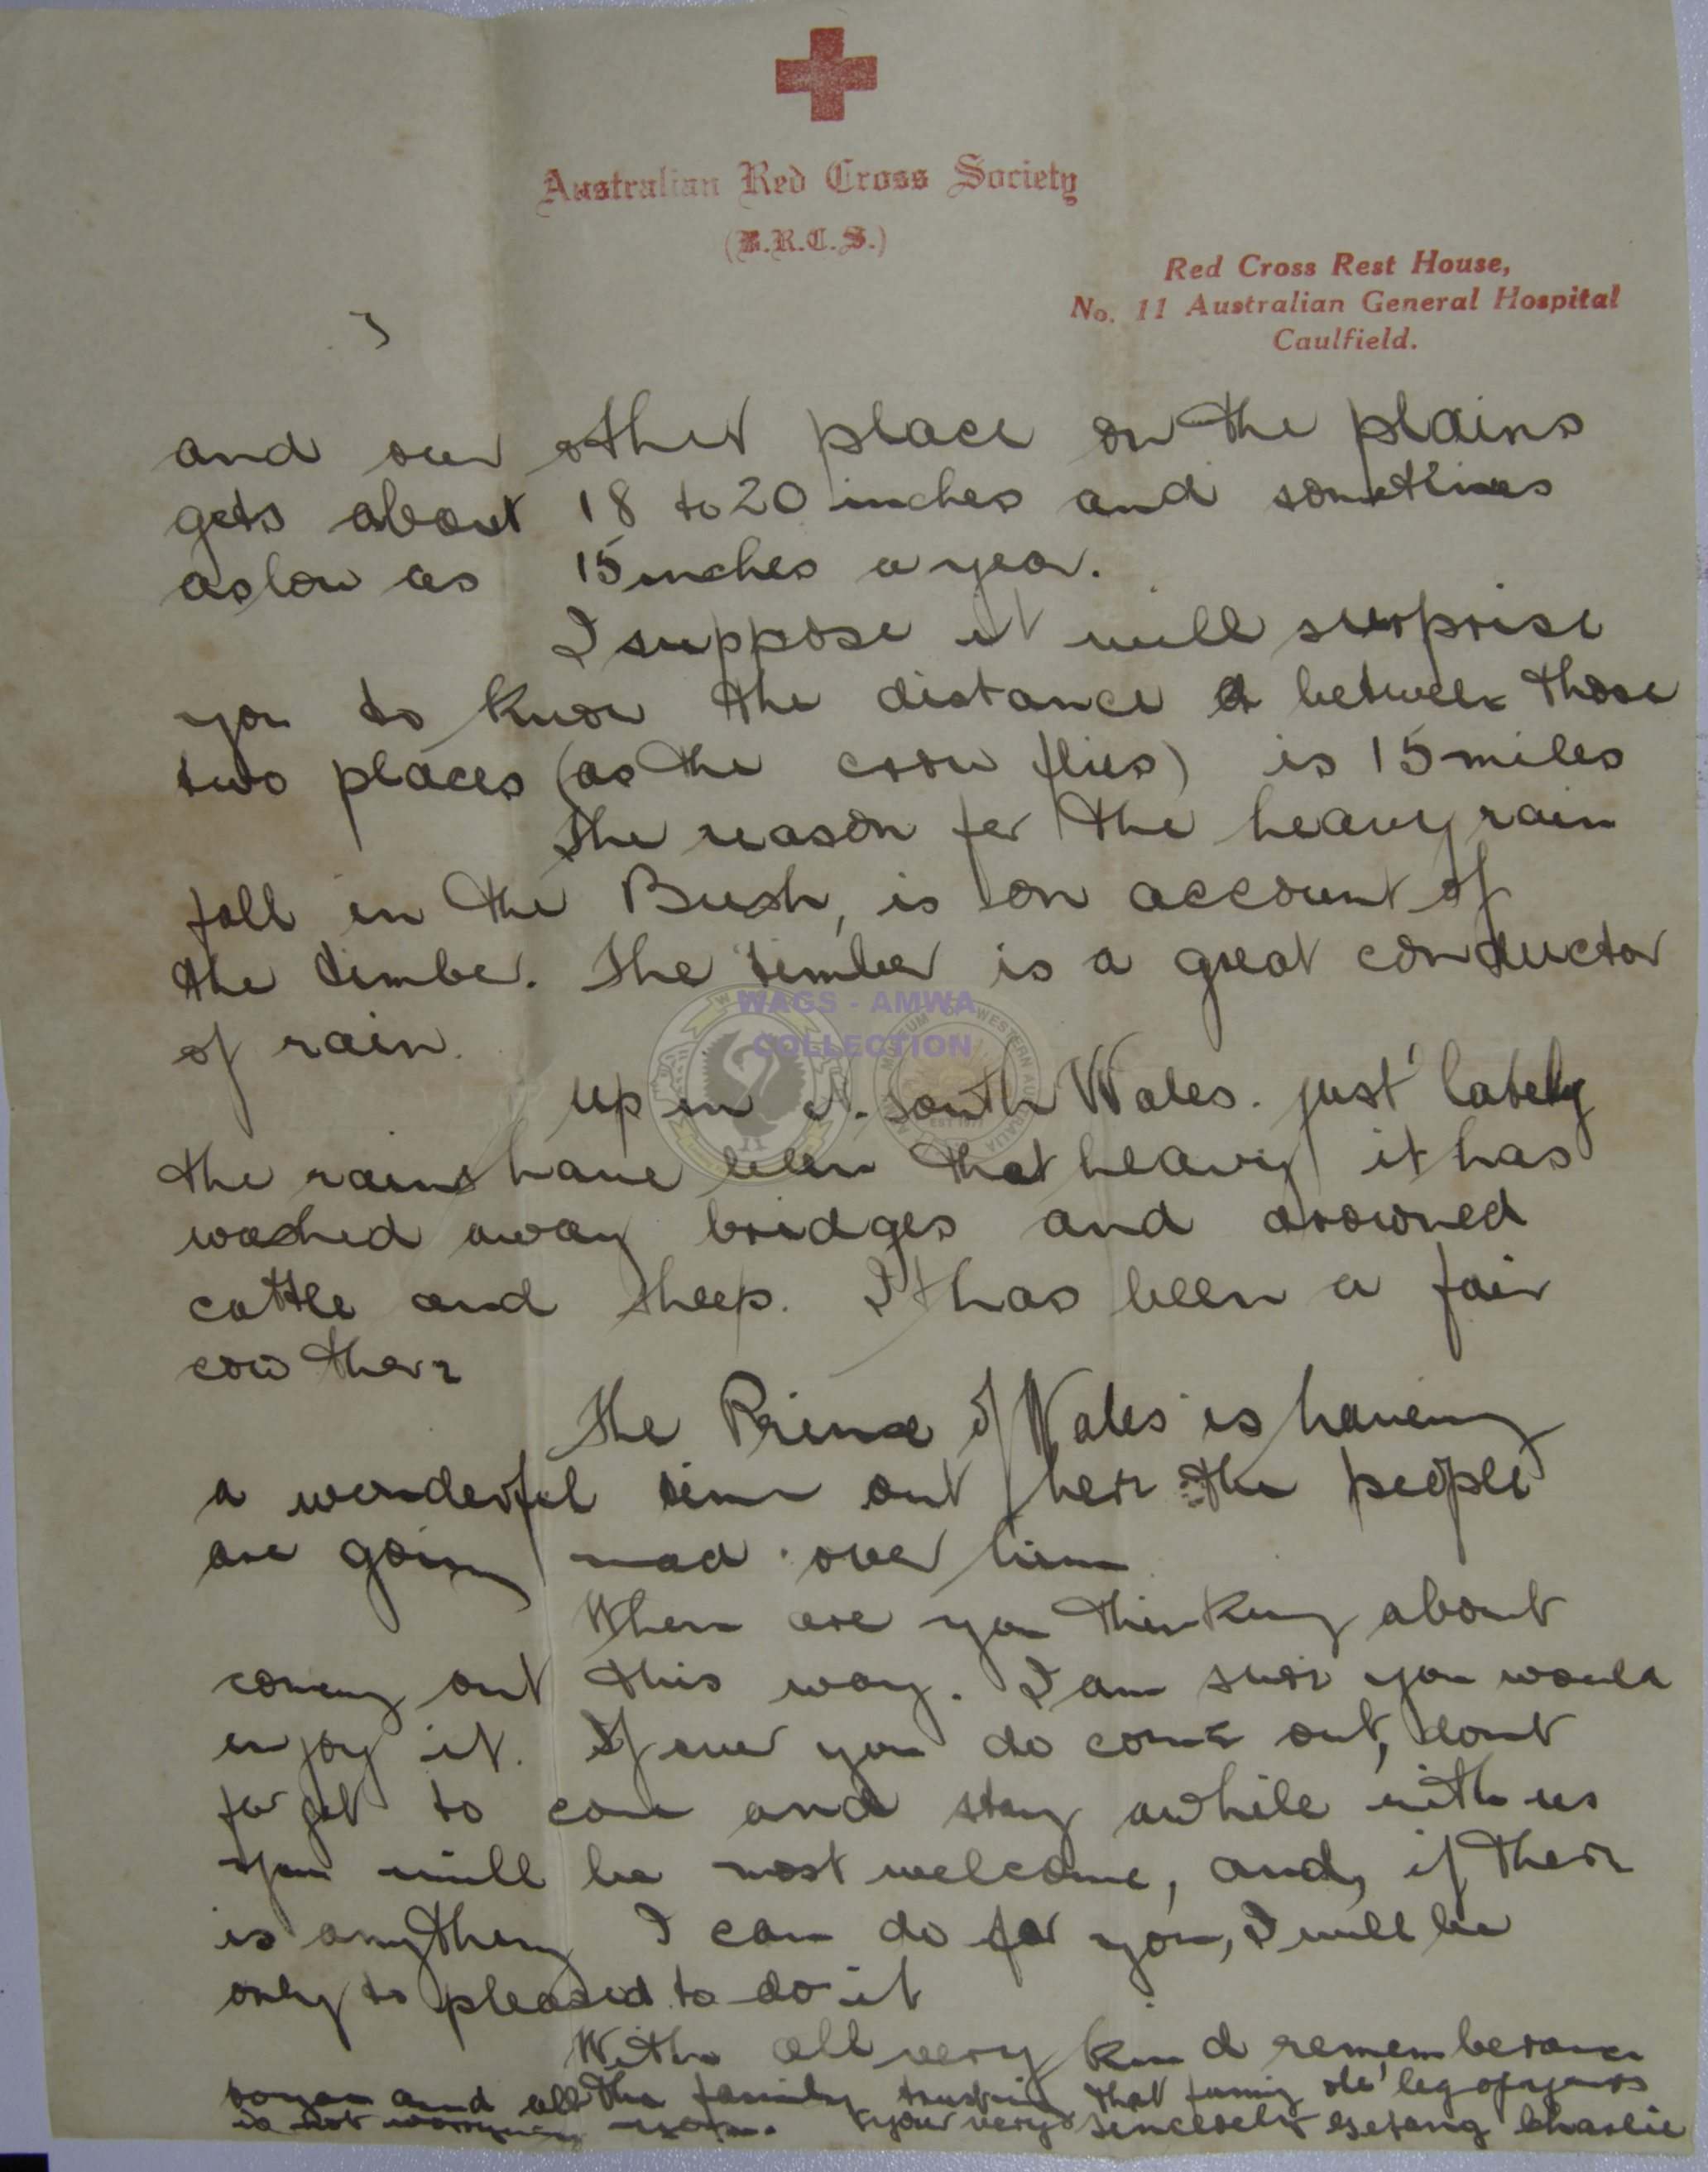 Australian Red Cross Society
(B.R.C.S.)
Red Cross Rest House,
No. 11 Australian General Hospital
Caulfield.
3
and our other place on the plains
gets about 18 to 20 inches and sometimes
as low as 15 inches a year.
I suppose it will surprise
you to know the distance between those
two places (as the crow flies) is 15 miles
The reason for the heavy rain
fall in the Bush, is on account of
the timber. The timber is a great conductor
of rain.
WAGS - AMWA
COLLECTION
up in N. South Wales. just lately
the rains have been that heavy it has
washed away bridges and drowned
cattle and sheep. It has been a fair
cow there
The Prince of Wales is having
a wonderful time out here the people
are going mad over him
When are you thinking about
coming out this way. I am sure you would
enjoy it. If ever you do come out, dont
forget to come and stay awhile with us
You will be most welcome, and, if there
is anything I can do for you, I will be
only to pleased to do it
With all very kind rememberance
to you and all the family trusting that funny ole' leg of yours
is not worrying you. your very sincerely Charlie